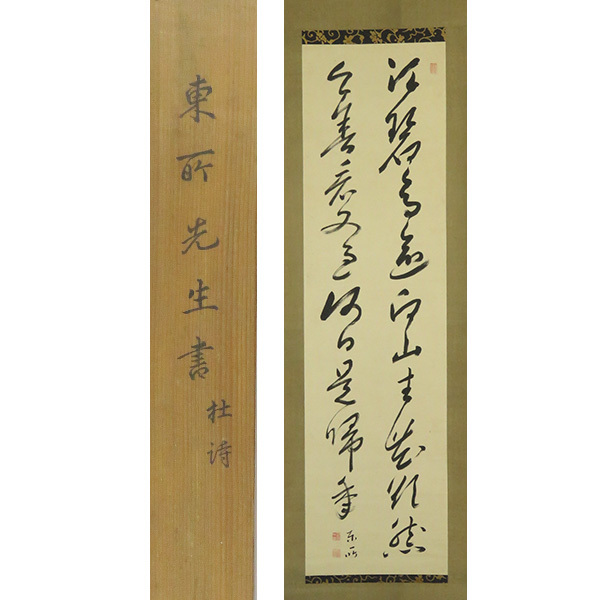 東所先生書
杜詩
江碧鳥逾白山青花欲然
今春看又過何日是帰年
東所